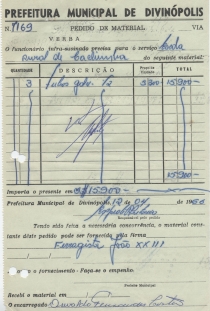 PREFEITURA MUNICIPAL DE DIVINÓPOLIS
N.º 1769 PEDIDO DE MATERIAL VIA
VERBA
O funcionário infra-assinado precisa para o serviço
Rural de do seguinte material:
QUANTIDADE DESCRIÇÃO Preço da Unidade TOTAL
3 1/2 5.300 15.900
15.900
Importa o presente em 15.900
Prefeitura Municipal de Divinópolis, 12 de 04 de 19
Responsável pelo pedido
Tendo sido feita a necessária concorrência, o material constante
dêste pedido pode ser fornecido pela firma
Ferragista João XXIII
o fornecimento - Faça-se o empenho.
Recebi o material em
O encarregado